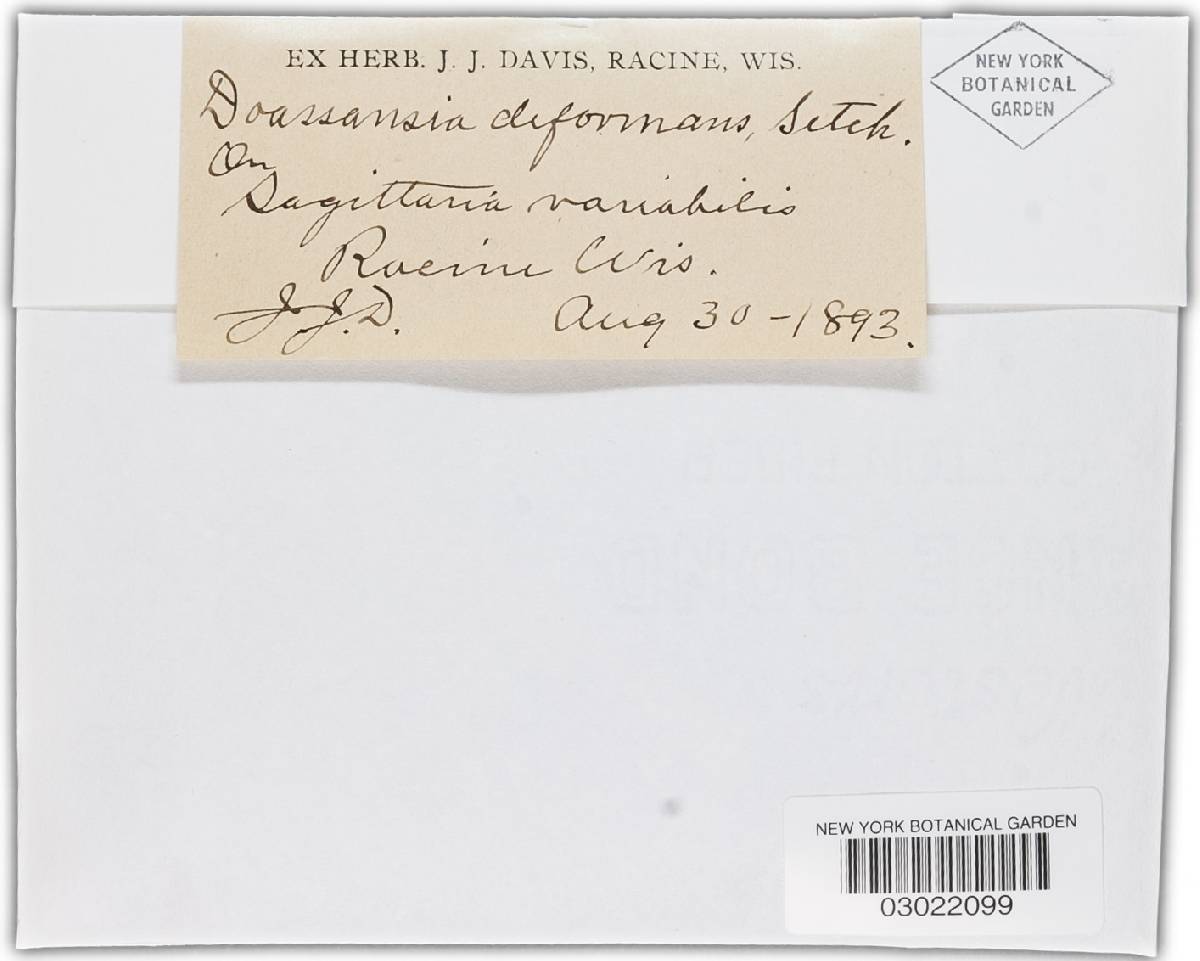 EX HERB. J. J. DAVIS, RACINE, WIS.
Doassansia deformans, Setch.
On
Sagittaria variabilis
Racine Wis.
J. J. D. Aug 30 - 1893.
NEW YORK
BOTANICAL
GARDEN
NEW YORK BOTANICAL GARDEN
03022099